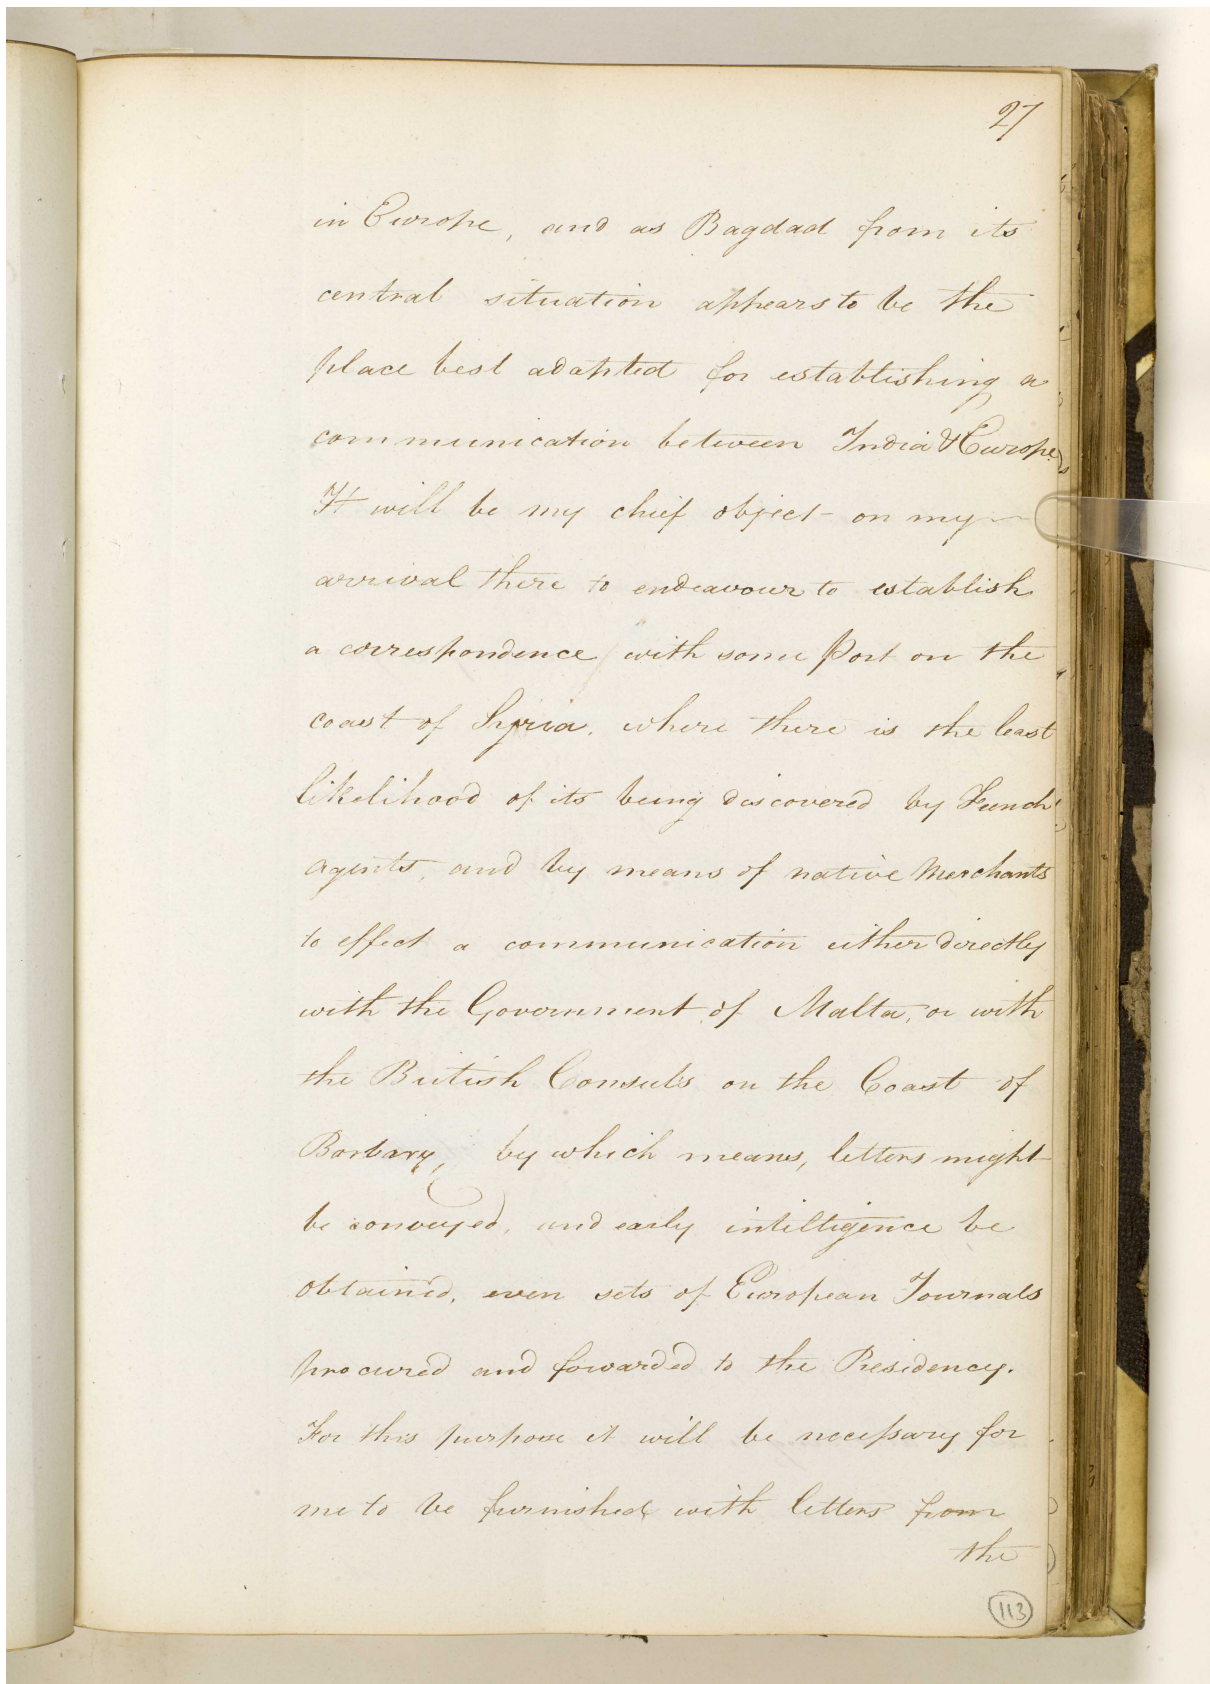 27
in Europe, and as Bagdad from its
central situation appears to be the
place best adapted for establishing a
communication between India & Europe.
It will be my chief object on my
arrival there to endeavour to establish
a correspondence with some Port on the
coast of Syria, where there is the least
likelihood of its being discovered by French
agents, and by means of native Merchants
to effect a communication either directly
with the Government of Malta, or with
the British Consuls on the Coast of
Barbary, by which means, letters might
be conveyed, and early intelligence be
obtained, even sets of European Journals
procured and forwarded to the Presidency.
For this purpose it will be necessary for
me to be furnished with letters from
the
113